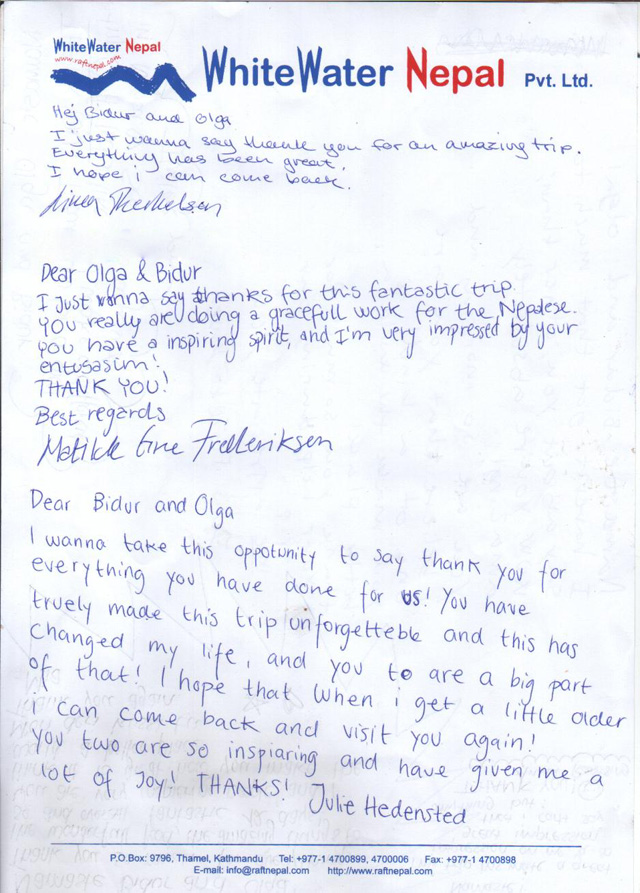 WhiteWater Nepal
www.raftnepal.com
WhiteWater Nepal Pvt. Ltd.
Hej Bidur and Olga
I just wanna say thank you for an amazing trip.
Everything has been great.
I hope i can come back.
Dear Olga & Bidur
I just wanna say thanks for this fantastic trip.
You really are doing a gracefull work for the Nepalese.
You have a inspiring spirit, and I'm very impressed by your
entusasim!
THANK YOU!
Best regards
Matilde Frederiksen
Dear Bidur and Olga
I wanna take this oppotunity to say thank you for
everything you have done for us! You have
truely made this trip unforgetteble and this has
changed my life, and you to are a big part
of that! I hope that when i get a little older
i can come back and visit you again!
You two are so inspiaring and have given me a
lot of joy! THANKS! Julie Hedensted
P.O.Box: 9796, Thamel, Kathmandu Tel: +977-1 4700899, 4700006 Fax: +977-1 4700898
E-mail: info@raftnepal.com http://www.raftnepal.com